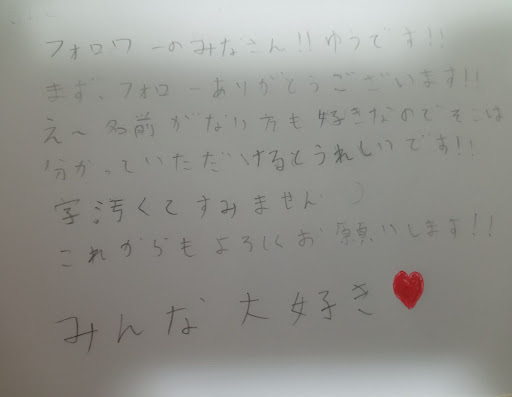 フォロワーのみなさん!!ゆうです!!
まず、フォローありがとうございます!!
え～名前がない方も好きなのでそこは
分かっていただけるとうれしいです!!
字汚くてすみません
これからもよろしくお願いします!!
みんな大好き♥